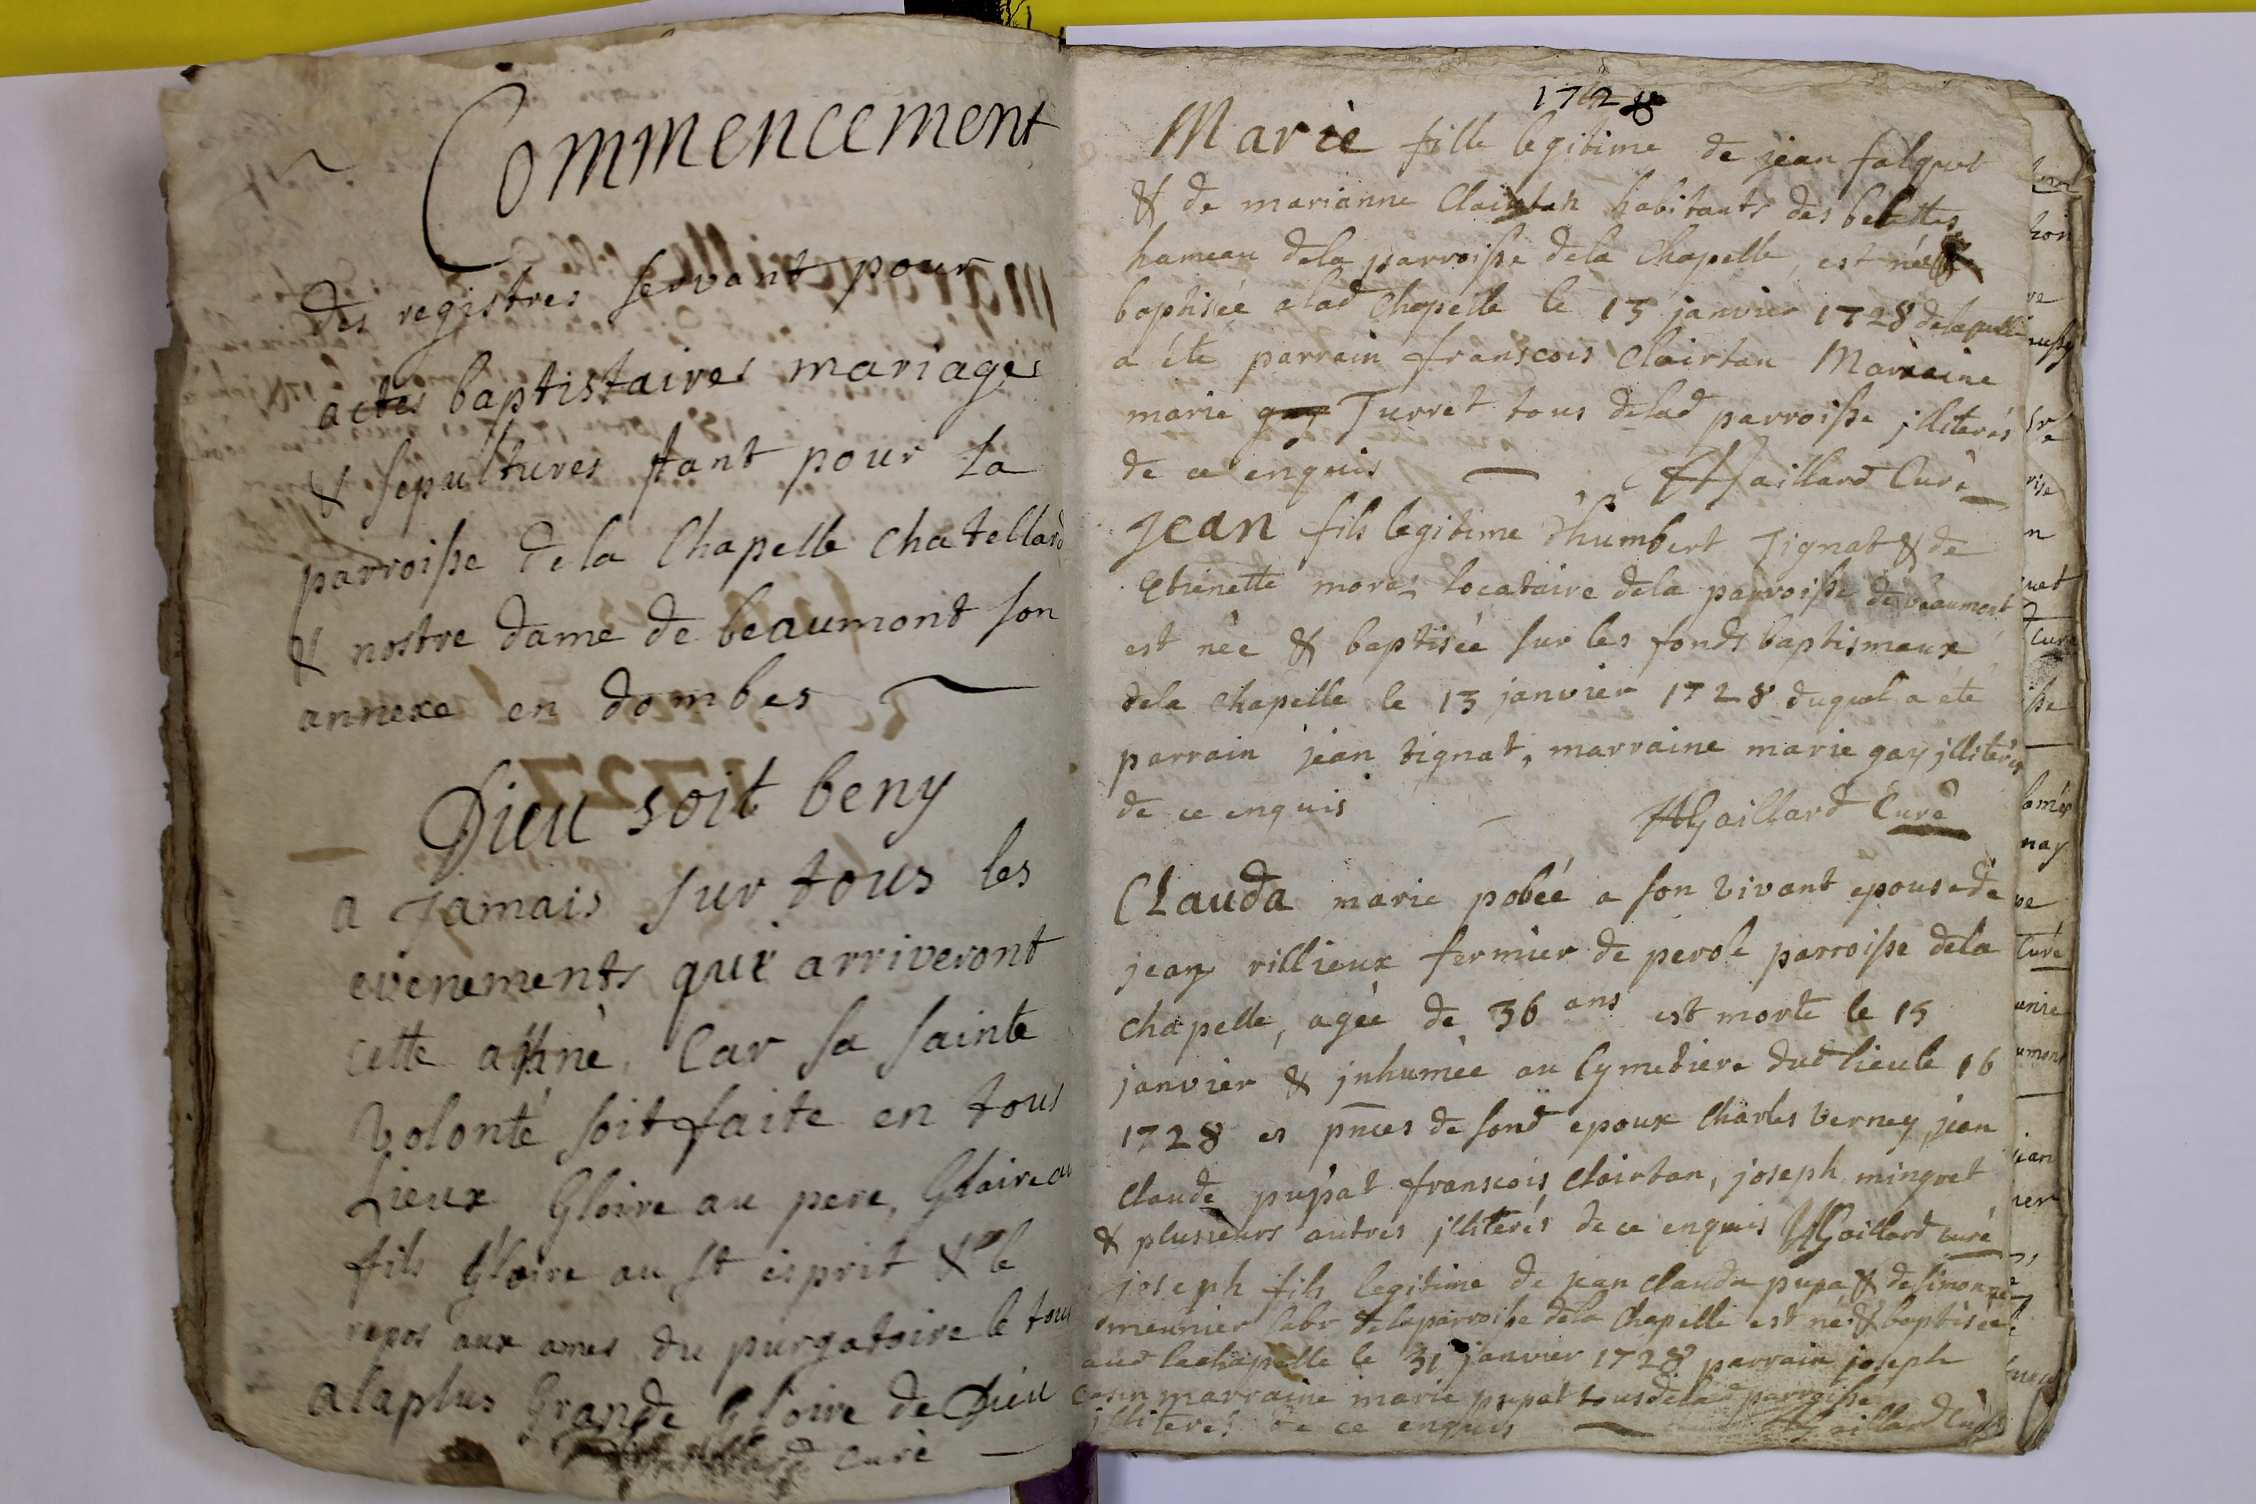 Commencement
des registres servant pour
actes baptistaires mariages
& sepultures tant pour la
parroisse de la Chapelle chatellard
& nostre dame de beaumont son
annexe en dombes
Dieu soit beny
a Jamais sur tous les
evenements qui arriveront
cette annè, Car sa sainte
Volonté soit faite en tous
Lieux Gloire au pere, Gloire au
fils Gloire au st esprit & le
repos aux ames du purgatoire le tout
a laplus Grande Gloire de Dieu
curè
1728
Marie fille legitime de jean falquet
& de marianne Clairtan habitants des belettes
hameau dela parroisse dela Chapelle, est née &
baptisée a lad Chapelle le 13 janvier 1728 delaquelle
a été parrain franscois Clairtan Marraine
marie Turret tous delad parroisse jlliterés
de ce enquis Gaillard Curè
Jean fils legitime d'humbert Tignat & de
Etienette morel locataire dela parroisse de beaumont
est née & baptisée sur les fonds baptismaux
dela Chapelle le 13 janvier 1728 duquel a été
parrain jean tignat, marraine marie gay jlliterés
de ce enquis Gaillard Curè
Clauda marie pobéé a son vivant epouse de
jean rillieux fermier de perole parroisse dela
chapelle, agée de 36 ans est morte le 15
janvier & jnhumèe au Cymetiere dud lieu le 16
1728 es pnces de sond epoux Charles Verney jean
Claude pupat franscois Clairtan, joseph mingret
& plusieurs autres jlliterés de ce enquis Gaillard curé
joseph fils legitime de jean Clauda pupa & de simonne
meunier labr dela parroisse dela Chapelle est né & baptisèe
aud lachapelle le 31 janvier 1728 parrain joseph
marraine marie pupat tous delad parroisse
jlliterés de ce enquis Gaillard Curè